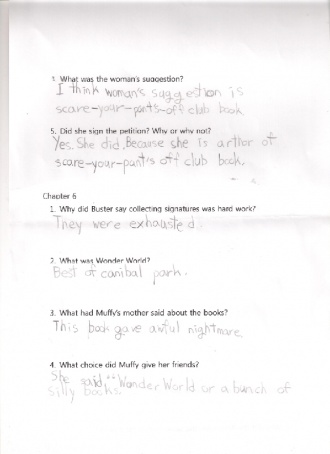 1. What was the woman's suggestion?
I think woman's suggestion is
scare-your-pants-off club book
5. Did she sign the petition? Why or why not?
Yes. She did. Because she is arthor of
scare-your-pants off club book.
Chapter 6
1. Why did Buster say collecting signatures was hard work?
They were exhausted.
2. What was Wonder World?
Best of canibal park.
3. What had Muffy's mother said about the books?
This book gave awful nightmare.
4. What choice did Muffy give her friends?
She said, "Wonder World or a bunch of
silly books.